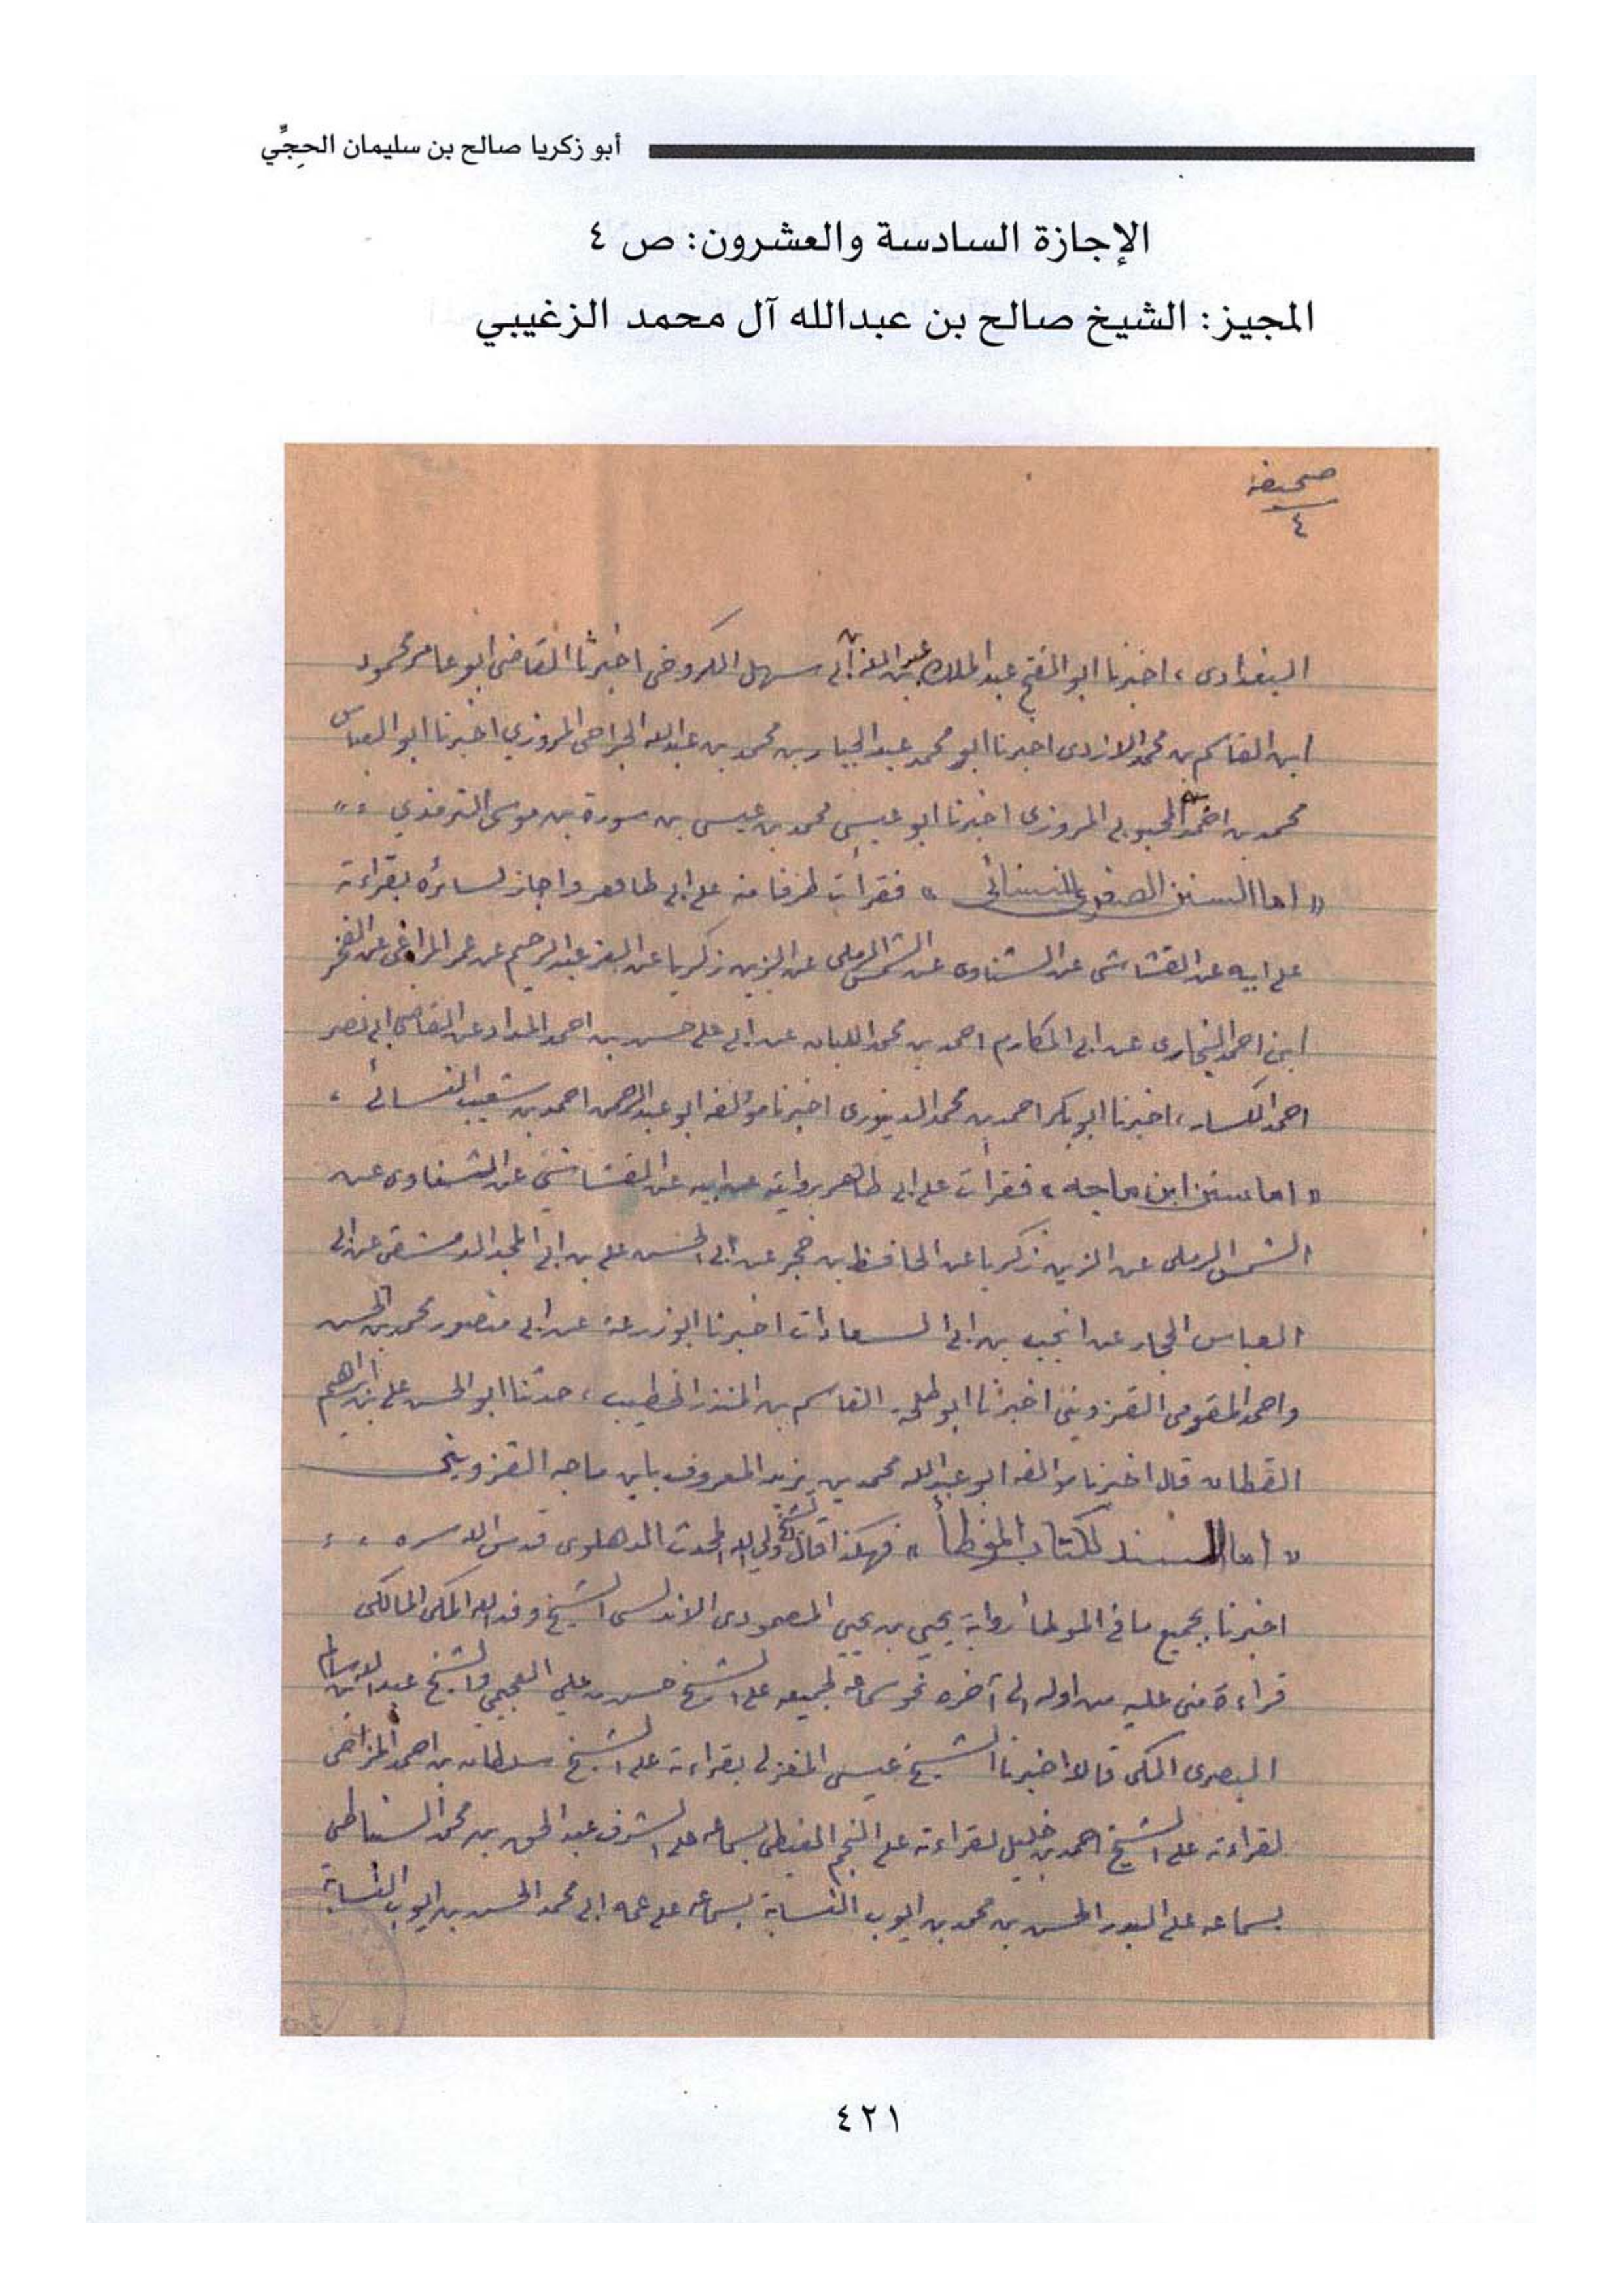 أبو زكريا صالح بن سليمان الحِجِّي
الإجازة السادسة والعشرون: ص ٤
المجيز: الشيخ صالح بن عبدالله آل محمد الزغيبي
صحيفة
٤
البغدادى، اخبرنا ابو الفتح عبد الملك بن عبد الله بن ابى سهل الكروخى اخبرنا القاضى ابو عامر محمود
ابن القاسم بن محمد الازدى اخبرنا ابو محمد عبد الجبار بن محمد بن عبد الله الجراحى المروزي اخبرنا ابو العباس
محمد بن احمد المحبوبى المروزى اخبرنا ابو عيسى محمد بن عيسى بن سورة بن موسى الترمذي
« اما السنن الصغرى للنسائى » فقرأت طرفا منه على ابى طاهر واجاز لسائره بقراءته
على ابيه عن القشاشى عن الشناوى عن الشمس الرملى عن الزين زكريا عن العز عبد الرحيم عن عمر المراغى عن الفخر
ابن احمد البخارى عن ابى المكارم احمد بن محمد اللبان عن ابى على حسن بن احمد الحداد عن القاضى ابى نصر
احمد الكسار، اخبرنا ابو بكر احمد بن محمد الدينورى اخبرنا مؤلفه ابو عبد الرحمن احمد بن شعيب النسائى،
« اما سنن ابن ماجه » فقرأت على ابى طاهر بروايته عن ابيه عن القشاشي عن الشناوى عن
الشمس الرملى عن الزين زكريا عن الحافظ بن حجر عن ابى الحسن على بن ابى المجد الدمشقى عن ابى
العباس الحجار عن انجب بن ابى السعادات اخبرنا ابو زرعة عن ابى منصور محمد بن الحسن
واحمد المقومى القزوينى اخبرنا ابو طلحة القاسم بن المنذر الخطيب، حدثنا ابو الحسن على بن ابراهيم
القطان قال اخبرنا مؤلفه ابو عبد الله محمد بن يزيد المعروف بابن ماجه القزوينى
« اما السند لكتاب الموطأ » فهكذا قال الشيخ ولي الله المحدث الدهلوى قدس الله سره
اخبرنا بجميع ما فى الموطأ رواية يحيى بن يحيى المصمودى الاندلسى الشيخ وفد الله المكى المالكى
قراءة منى عليه من اوله الى آخره نحو سماعه لجميعه على الشيخ حسن بن علي العجيمي والشيخ عبد الله بن سالم
البصرى المكى قالا اخبرنا الشيخ عيسى المغربى بقراءته على الشيخ سلطان بن احمد المزاحى
لقراءته على الشيخ احمد بن خليل لقراءته على النجم الغيطى بسماعه على الشرف عبد الحق بن محمد السنباطى
بسماعه على البدر الحسن بن محمد بن ايوب النسابة بسماعه على عمه ابى محمد الحسن بن ايوب النسابة
٤٢١